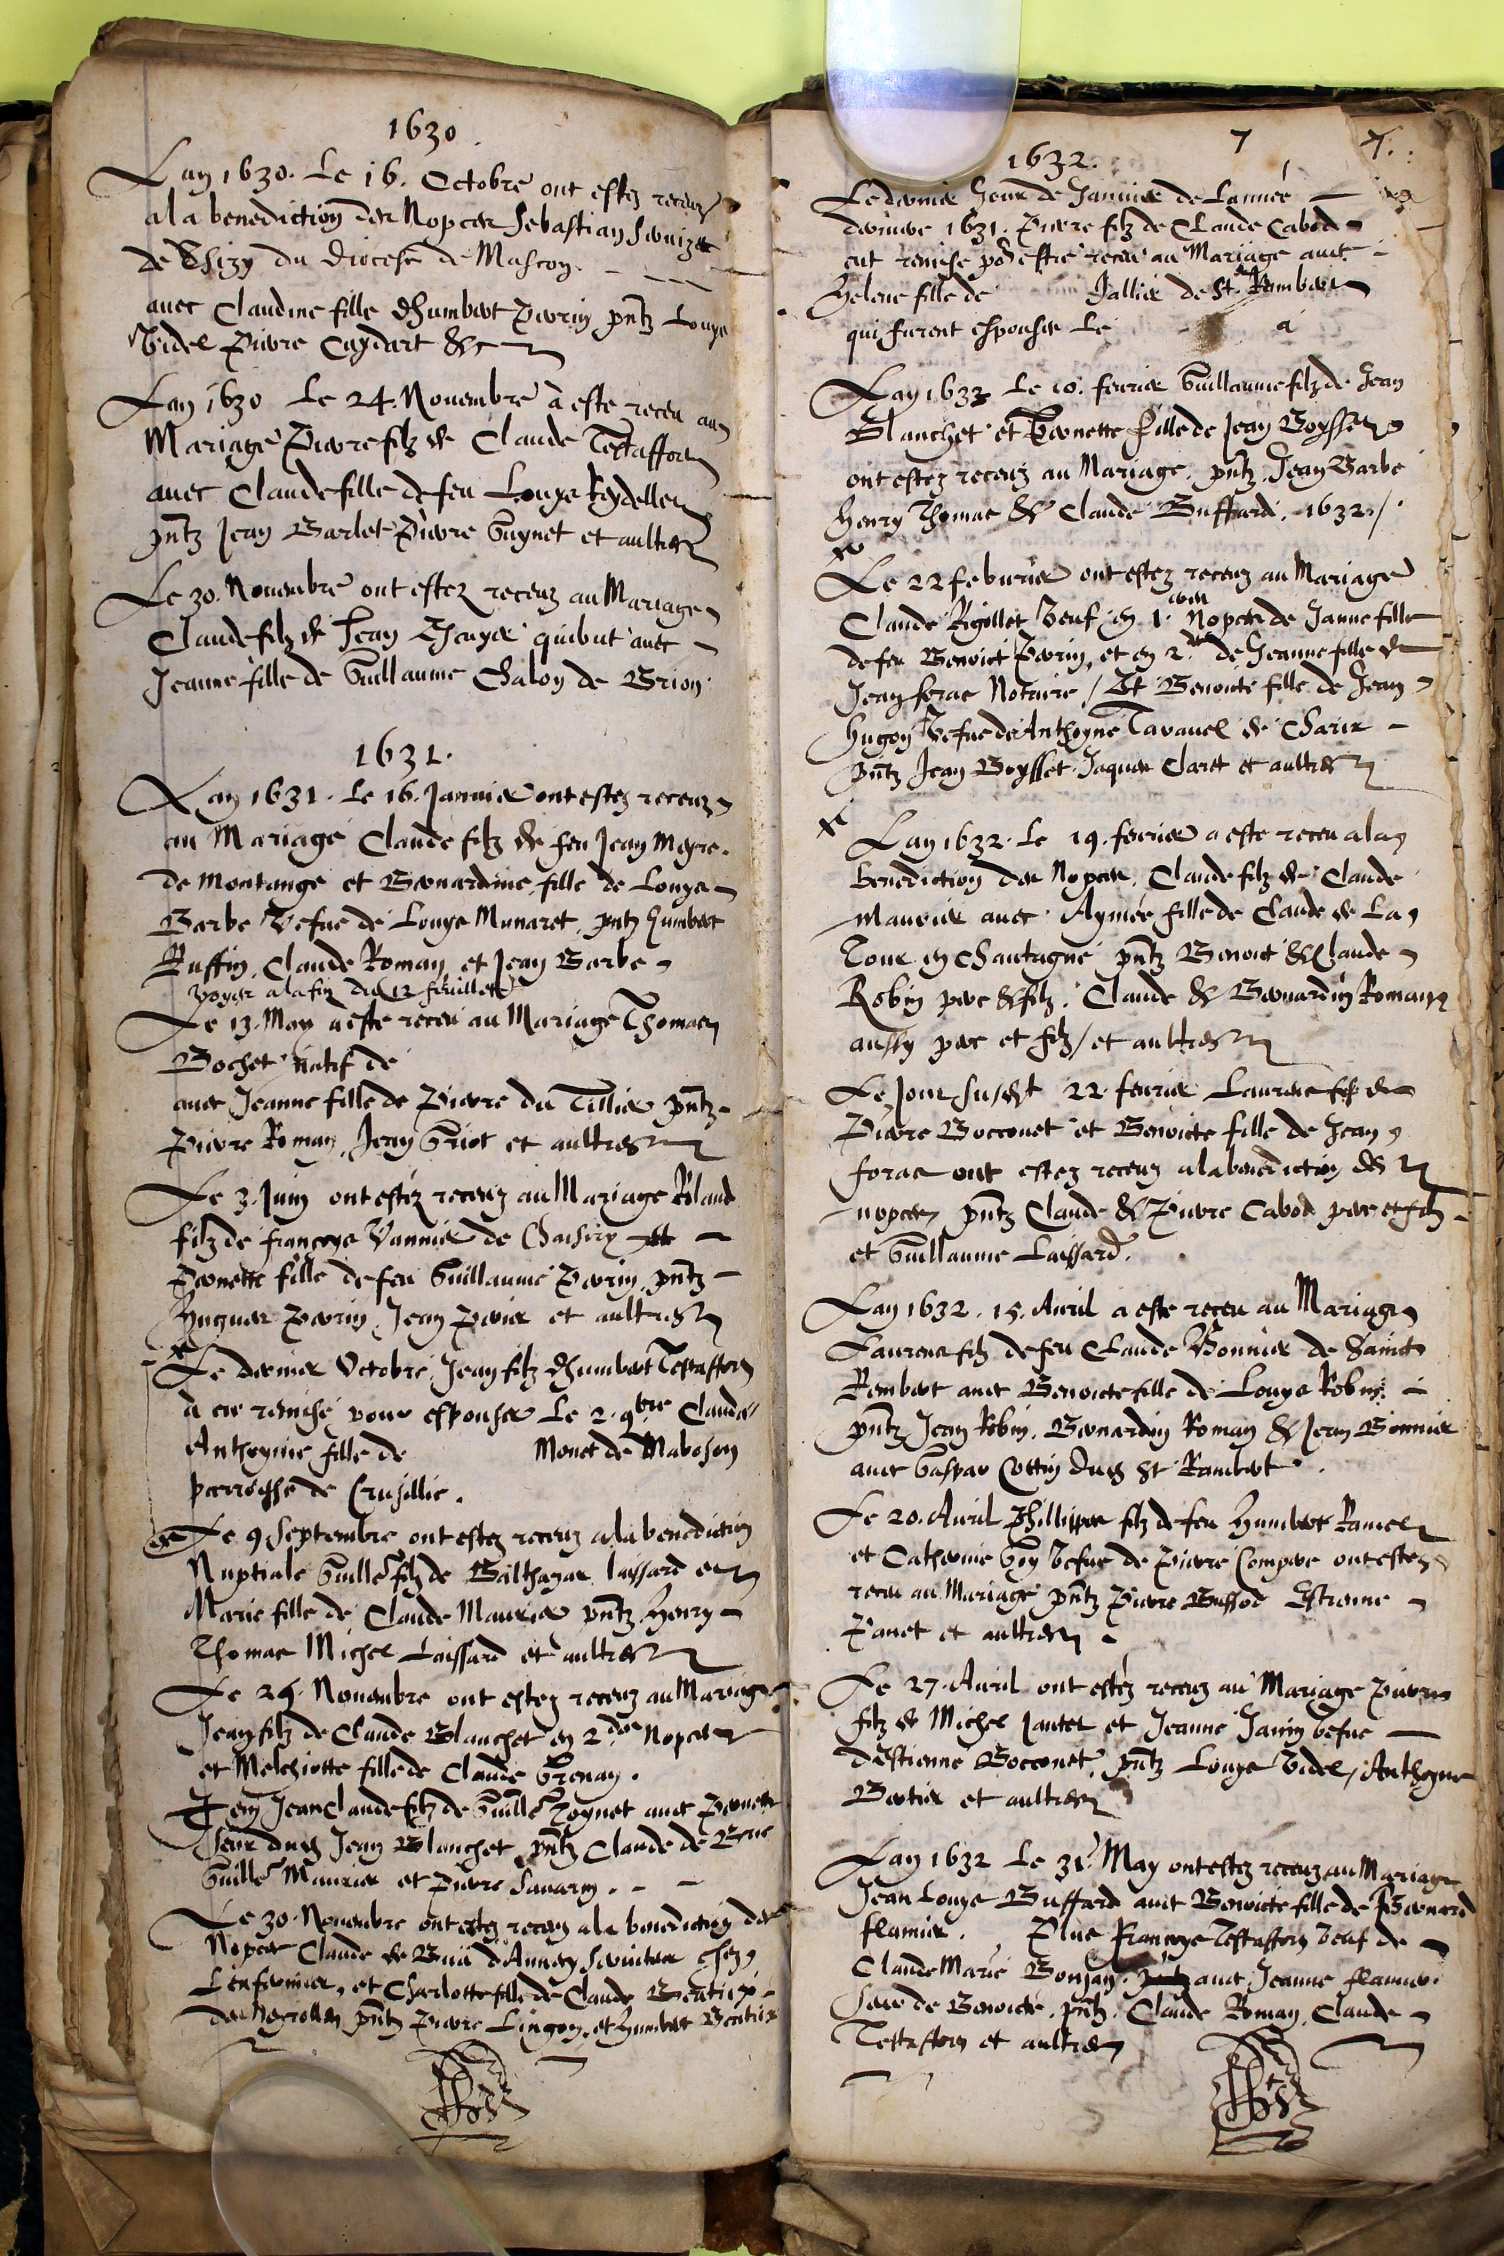 1630.
Lan 1630. Le 16. Octobre ont estez receuz
a la benediction des Nopces Sebastian
de du diocese de Mascon.
avec Claudine fille dhumbert Perrin pntz Louys
Videl Pierre Cuydart &c
Lan 1630 Le 24. Novembre à esté receu au
Mariage Pierre filz de Claude Testaffort
avec Claude fille de feu Louys Reydellet
pntz Jean Barlet Pierre Guynet et aultres
Le 30. Novembre ont estez receuz au Mariage
Claude filz de Jean quibut avec
Jeanne fille de Guillaume Chalon de Brion
1631.
Lan 1631. Le 16. Janvier ont estez receuz
au Mariage Claude filz de feu Jean Meyre.
de Montange et Bernardine fille de Louys
Barbe Vefue de Louys Munaret. pntz humbert
Ruffin, Claude Roman, et Jean Barbe
voyez a la fin du 12 feuillet
Le 13. May a esté receu au Mariage Thomas
Bochet natif de
avec Jeanne fille de Pierre du Tillier pntz
Pierre Roman, Jean Griot et aultres
Le 3. Juin ont estéz receuz au Mariage Roland
filz de françoys Vannier de et
Pernette fille de feu Guillaume Perrin, pntz
Hugues Perrin, Jean Perier et aultres
Le dernier Octobre Jean filz dhumbert Testaffort
à eu remise pour espouser Le 2. 9bre Claude
Anthoynie fille de Monet de Maboson
parroisse de Crusillie.
Le 9 Septembre ont estez receuz a la benediction
Nuptiale Guille filz de Balthazar laissard et
Marie fille de Claude Maurier pntz Henry
Thomas Michel Laissard et aultres
Le 29. Novembre ont estez receuz au Mariage
Jean filz de Claude Blanchet en 2des Nopces
et Melchiotte fille de Claude Grenay.
Item Jean Claude filz de Guille Thoynet avec Pernette
seur dudt Jean Blanchet, pntz Claude de Brie
Guille Maurier et Pierre Savarin.
Le 30. Novembre ont estez receuz a la benediction des
Nopces Claude de serviteur chez
Lenfermier, et Charlotte fille de Claude
pntz Pierre Lingon, et humbert
7
7.
1632.
Le dernier Jour de Janvier de Lannée
derniere 1631. Pierre filz de Claude Cabod
eut remise por estre receu au Mariage avec
Helene fille de Jallier de St. Rambert
qui furent espouses Le a
Lan 1632 Le 10. fevrier Guillaume filz de Jean
Blanchet et Pernette fille de Jean Boysset
ont estez receuz au Mariage, pntz Jean Barbe
Henry Thomas & Claude Buffard. 1632./.
Le 22 febvrier ont estez receuz au Mariage
Claude Rigollet Veuf en 1.eres Nopces de Janne fille
de feu Benoict Perrin, et en 2.des de Jeanne fille de
Jean foras Notaire / Et Benoicte fille de Jean
Hugon Vefue de Anthoyne Tavanel de Charix
pntz Jean Boysset Jaques Claret et aultres
Lan 1632. Le 19. fevrier a esté receu a la
benediction des Nopces. Claude filz de Claude
Maurier avec Aymée fille de Claude de La
Tour en Chautagne pntz Benoict & Claude
Robin pere & filz. Claude & Bernardin Roman
aussy pere et filz / et aultres
Le Jour susdt 22 fevrier Laurens filz de
Pierre Bocconet et Benoicte fille de Jean
foras ont estez receuz a la benediction des
nopces pntz Claude & Pierre Cabod pere et filz
et Guillaume Laissard.
Lan 1632. 15. Avril a esté receu au Mariage
Laurens filz de feu Claude Bonnier de Sainct
Rembert avec Benoicte fille de Louys Robin.
pntz Jean Robin, Bernardin Roman & Jean Bonnier
avec Gaspar Cottin dudt St Rambert.
Le 20. Avril Phillippes filz de feu Humbert Ramel
et Catherine Goy Vefue de Pierre Compere ont estez
receu au Mariage pntz Pierre Bussod Estienne
Panet et aultres
Le 27. Avril ont estéz receuz au Mariage Pierre
filz de Michel Jantet et Jeanne Janin vefue
destienne Bocconet, pntz Louys Videl, Anthoyne
Bertier et aultres
Lan 1632 Le 31. May ont estez receuz au Mariage
Jean Louys Buffard avec Benoicte fille de Bernard
flamier. Plus Françoys Testaffort Veuf de
Claude Marie Bonjan. avec Jeanne flamier.
seur de Benoicte, pntz Claude Roman, Claude
Testaffort et aultres